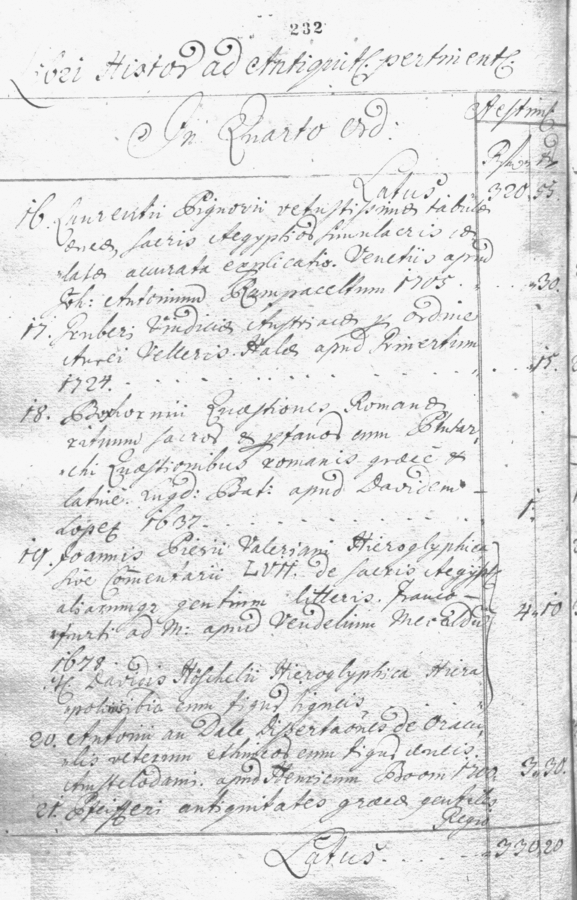 232
Libri Histor ad Antiquit. pertinent.
In Quarto ord:
Aestim.
Latus 320. 55.
16. Laurentii Pignorii vetustissimæ tabulæ
æneæ sacris Aegyptior simulacris cæ-
latæ accurata explicatio. Venetiis apud
Joh: Antonium Rampacettum 1705. . . . 30.
17. Gruberi Vindiciæ Austriacæ ordine
Aurei Velleris. Halæ apud 15.
1724. . . . . . . . .
18. Boxhornii Quæstiones Romanæ
rituum sacror & pfanor cum Plutar-
chi Quæstionibus romanis græcè &
latinè. Lugd: Bat: apud Davidem
Lopez 1637. . . . . . . . 1.
19. Joannis Pierii Valeriani Hieroglyphica
sive Comentarii LVII. de sacris Aegypt
aliarumqz gentium litteris. Franco-
furti ad M: apud Vendelinum 4. 10
1678.
It. Davidis Höschelii Hieroglyphica
cum figur ligneis . . .
20. Antonii van Dale Dissertaões de Oracu-
lis veterum ethnicor cum figur æneis.
Amstelodami. apud Henricum Boom 1700. 3. 30.
21. Pfeifferi antiquitates græcæ gentilis
Regio
Latus. . . . . . 330 20